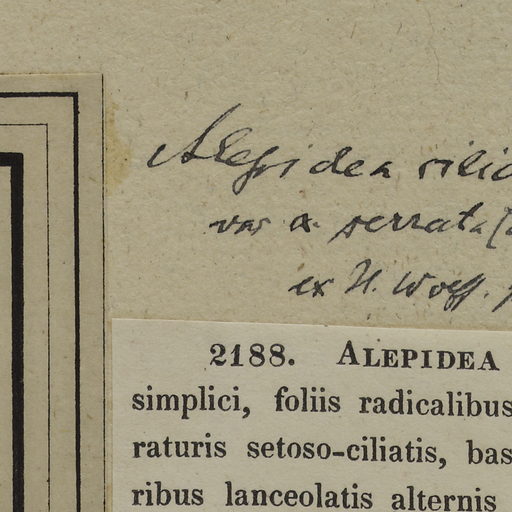 Alepidea cilia
var α. serrata
ex H. Wolff.
2188. ALEPIDEA
simplici, foliis radicalibus
raturis setoso-ciliatis, bas
ribus lanceolatis alternis